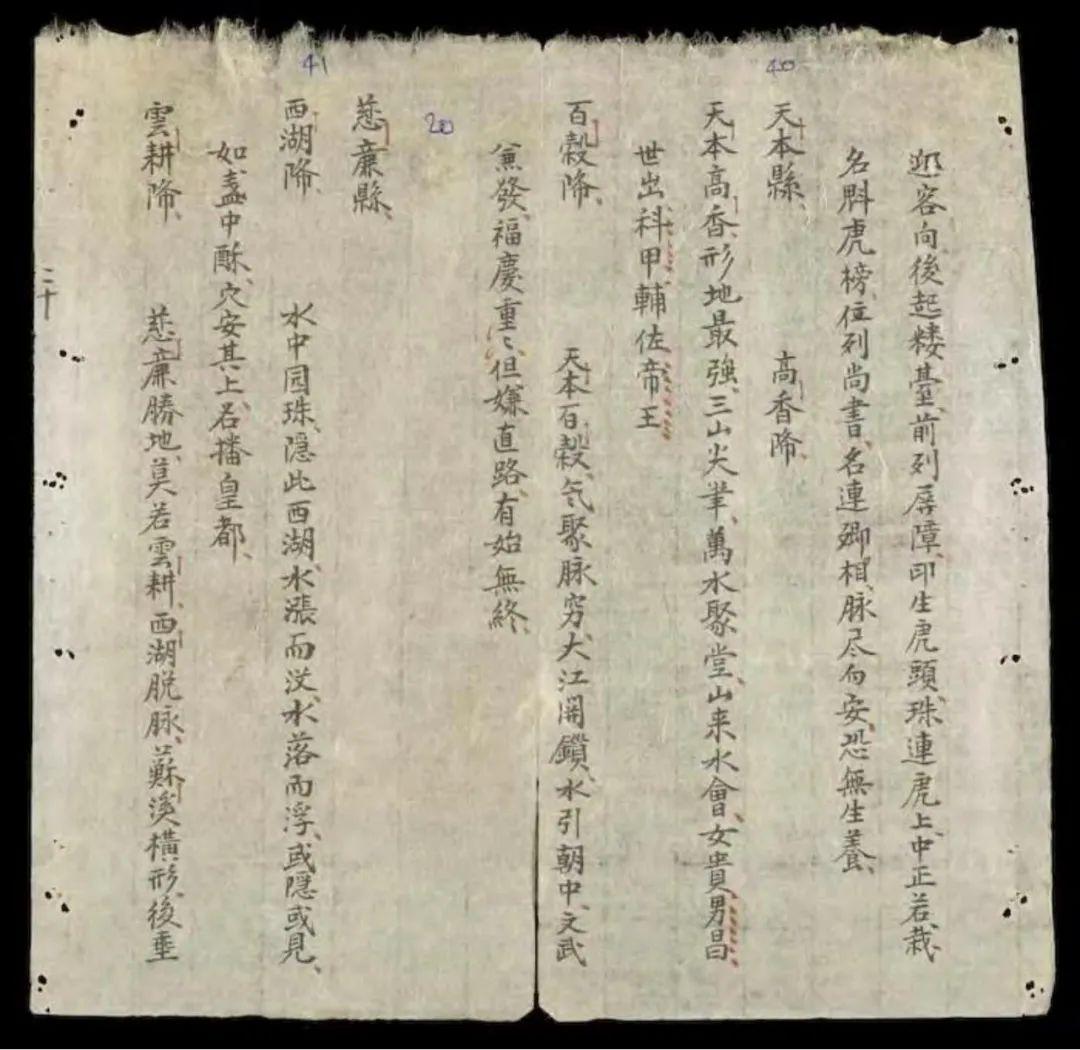 40
迎客向、後起楼臺、前列屏障、印生虎頭、珠連虎上、中正若栽、
名魁虎榜、位列尚書、名連卿相、脉尽向安、恐無生養、
天本縣、 高香降、
天本高香、形地最強、三山尖筆、萬水聚堂、山来水會、女貴男昌、
世出科甲輔佐帝王
百穀降、 天本百穀、気聚脉穷、大江開鎖、水引朝中、文武
兼發、福慶重〻、但嫌直路、有始無終、
41
20
慈廉縣、
西湖降、 水中园珠、隠此西湖、水漲而没、水落而浮、或隠或見、
如盏中酥、穴安其上、名播皇都、
雲耕降、 慈廉勝地、莫若雲耕、西湖脱脉、蘇溪橫形、後垂
二十